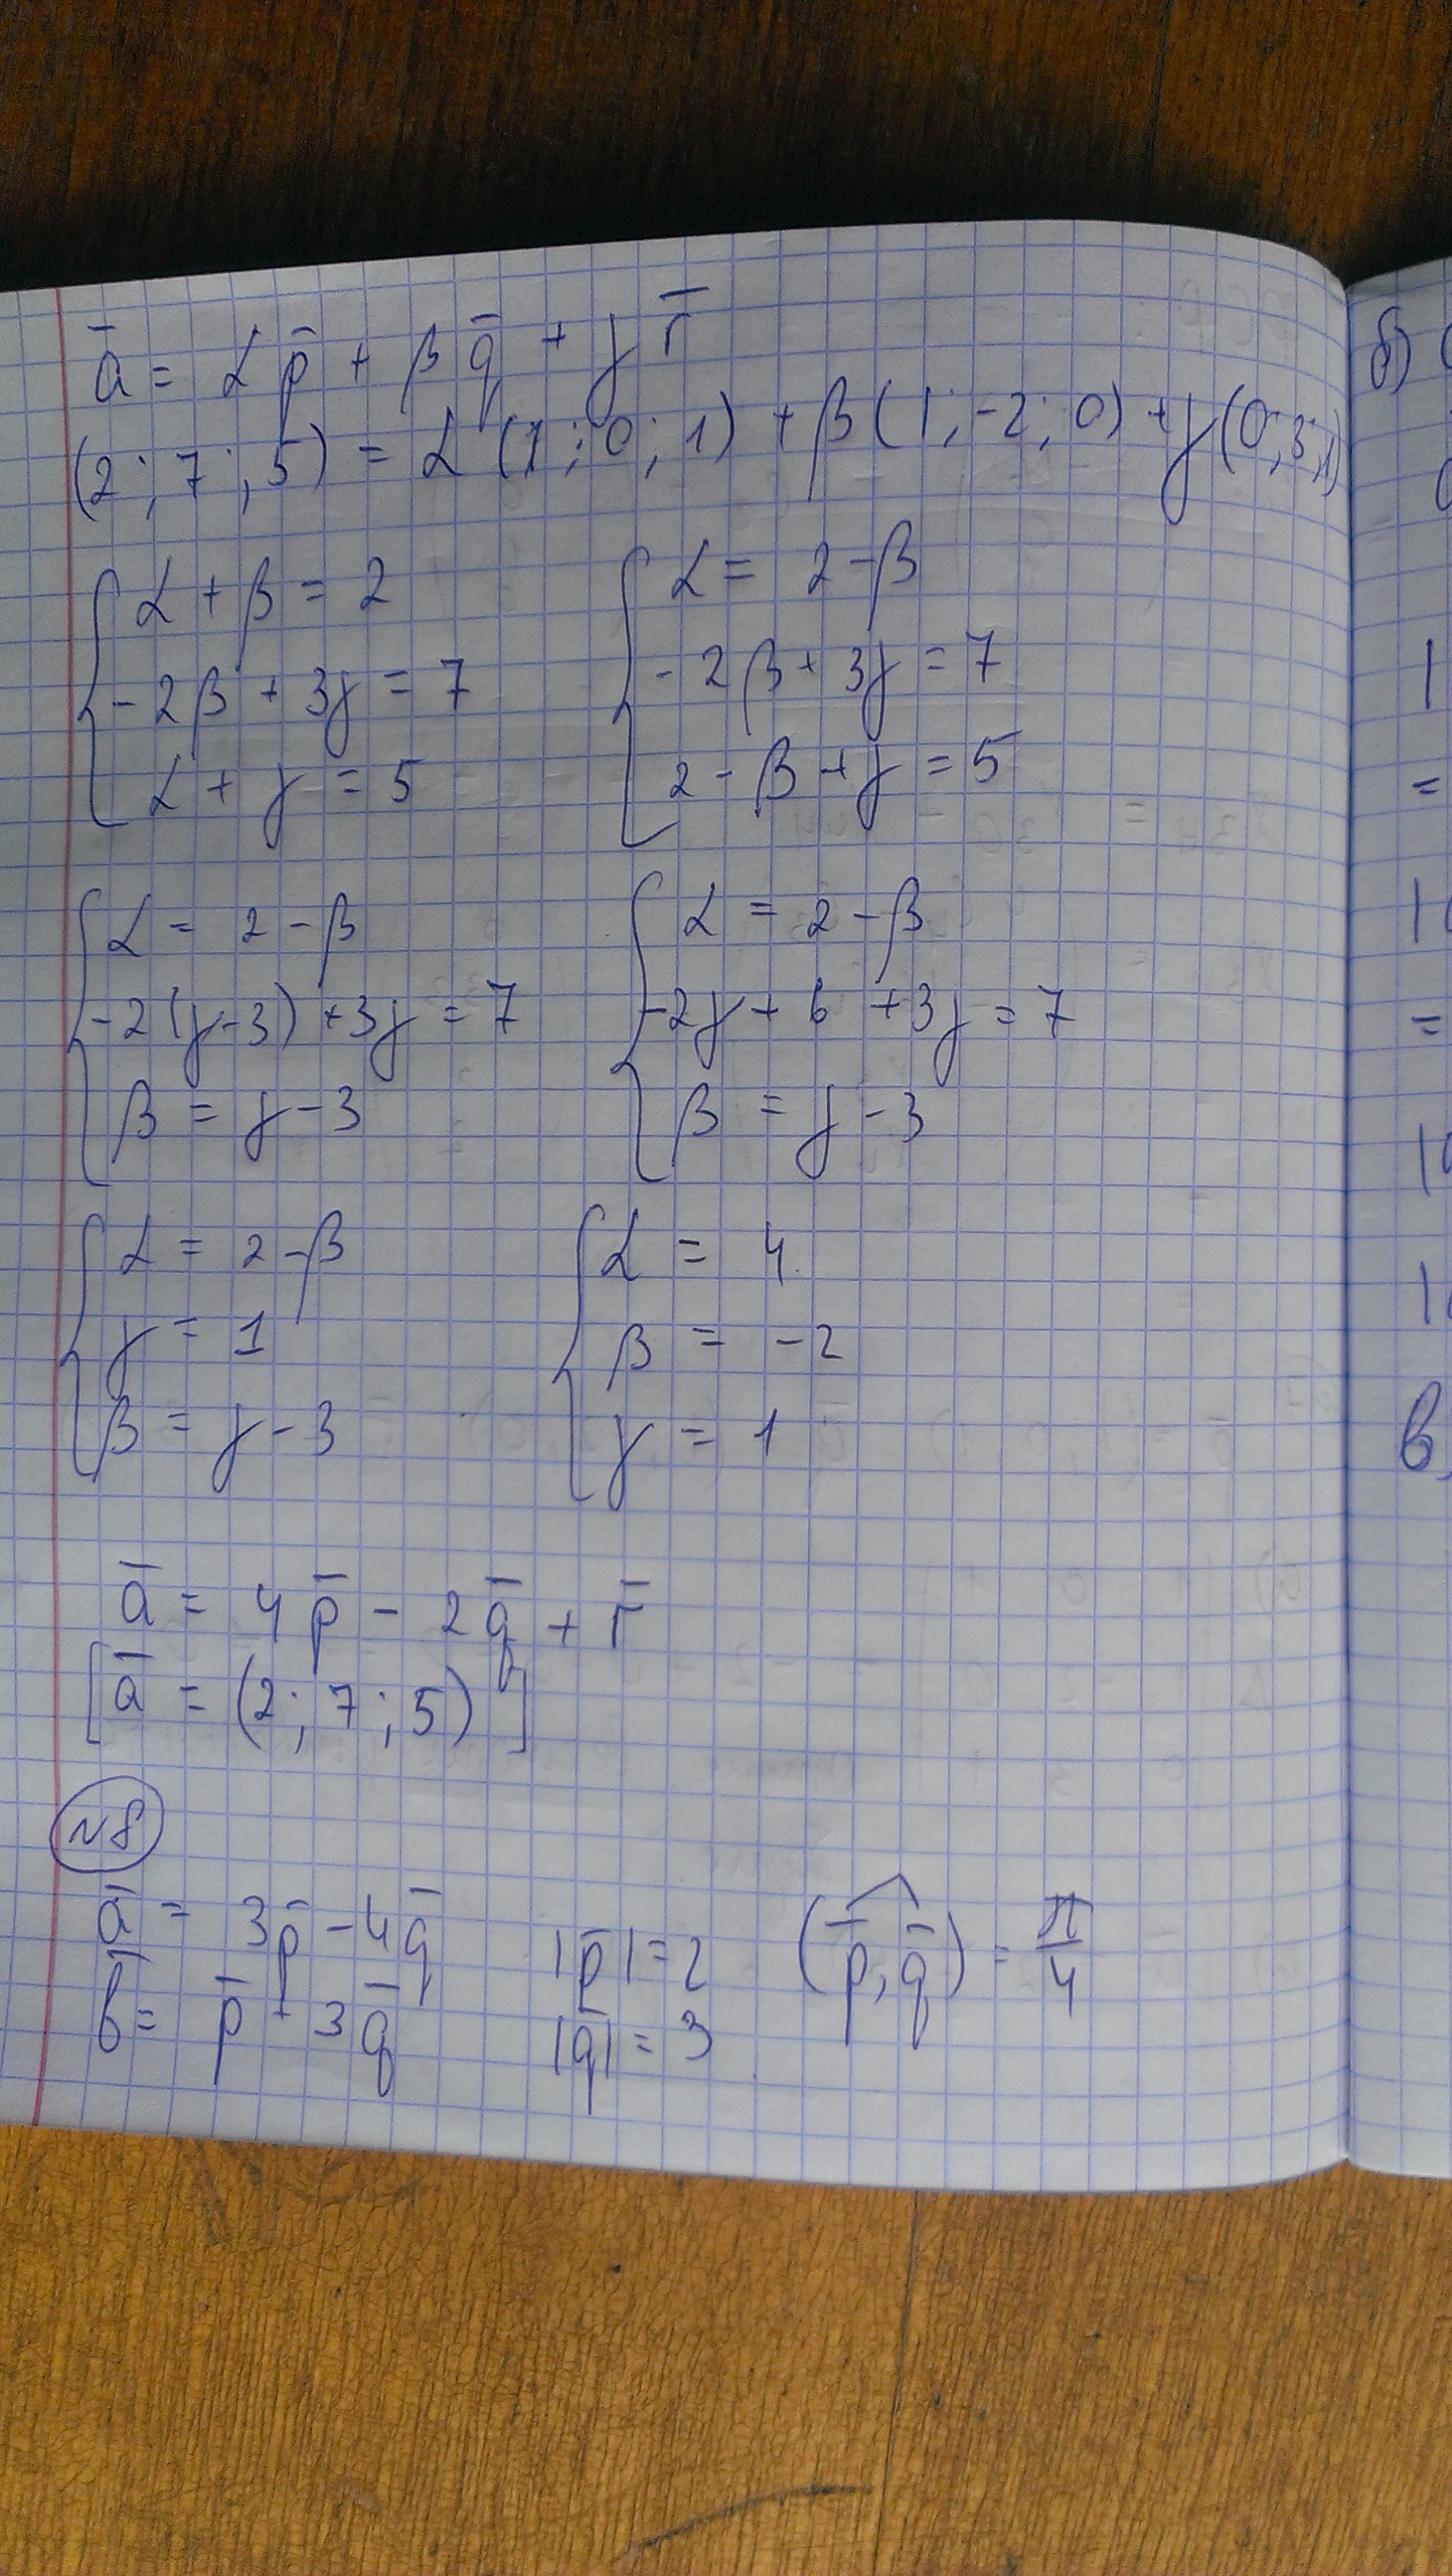 a̅ = αp̅ + βq̅ + γr̅
(2; 7; 5) = α(1; 0; 1) + β(1; -2; 0) + γ(0; 3; 1)
{ α + β = 2
-2β + 3γ = 7
α + γ = 5
{ α = 2 - β
-2β + 3γ = 7
2 - β + γ = 5
{ α = 2 - β
-2(γ-3) + 3γ = 7
β = γ - 3
{ α = 2 - β
-2γ + 6 + 3γ = 7
β = γ - 3
{ α = 2 - β
γ = 1
β = γ - 3
{ α = 4
β = -2
γ = 1
a̅ = 4p̅ - 2q̅ + r̅
[a̅ = (2; 7; 5)]
№8
a̅ = 3p̅ - 4q̅
|p̅| = 2
(p̅, q̅) = π/4
|q̅| = 3
б)
=
=
в